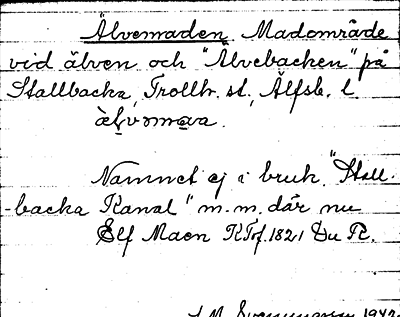 Älvemaden. Madområde
vid älven och "Älvebacken" på
Stallbacka, Trollh. st., Älfsb. l.
Namnet ej i bruk. "Stall-
-backa Kanal" m.m. där nu
Elf Maen KTof. 1821 Du Rc.